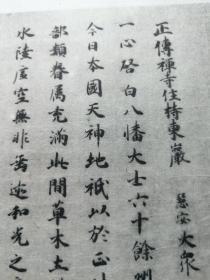 正傳禅寺住持東巖慧安大衆
一心啓白八幡大士六十餘州
今日本國天神地祇以於正
部類眷属充滿此間草木土
水陸虚空無非垂迹和光之